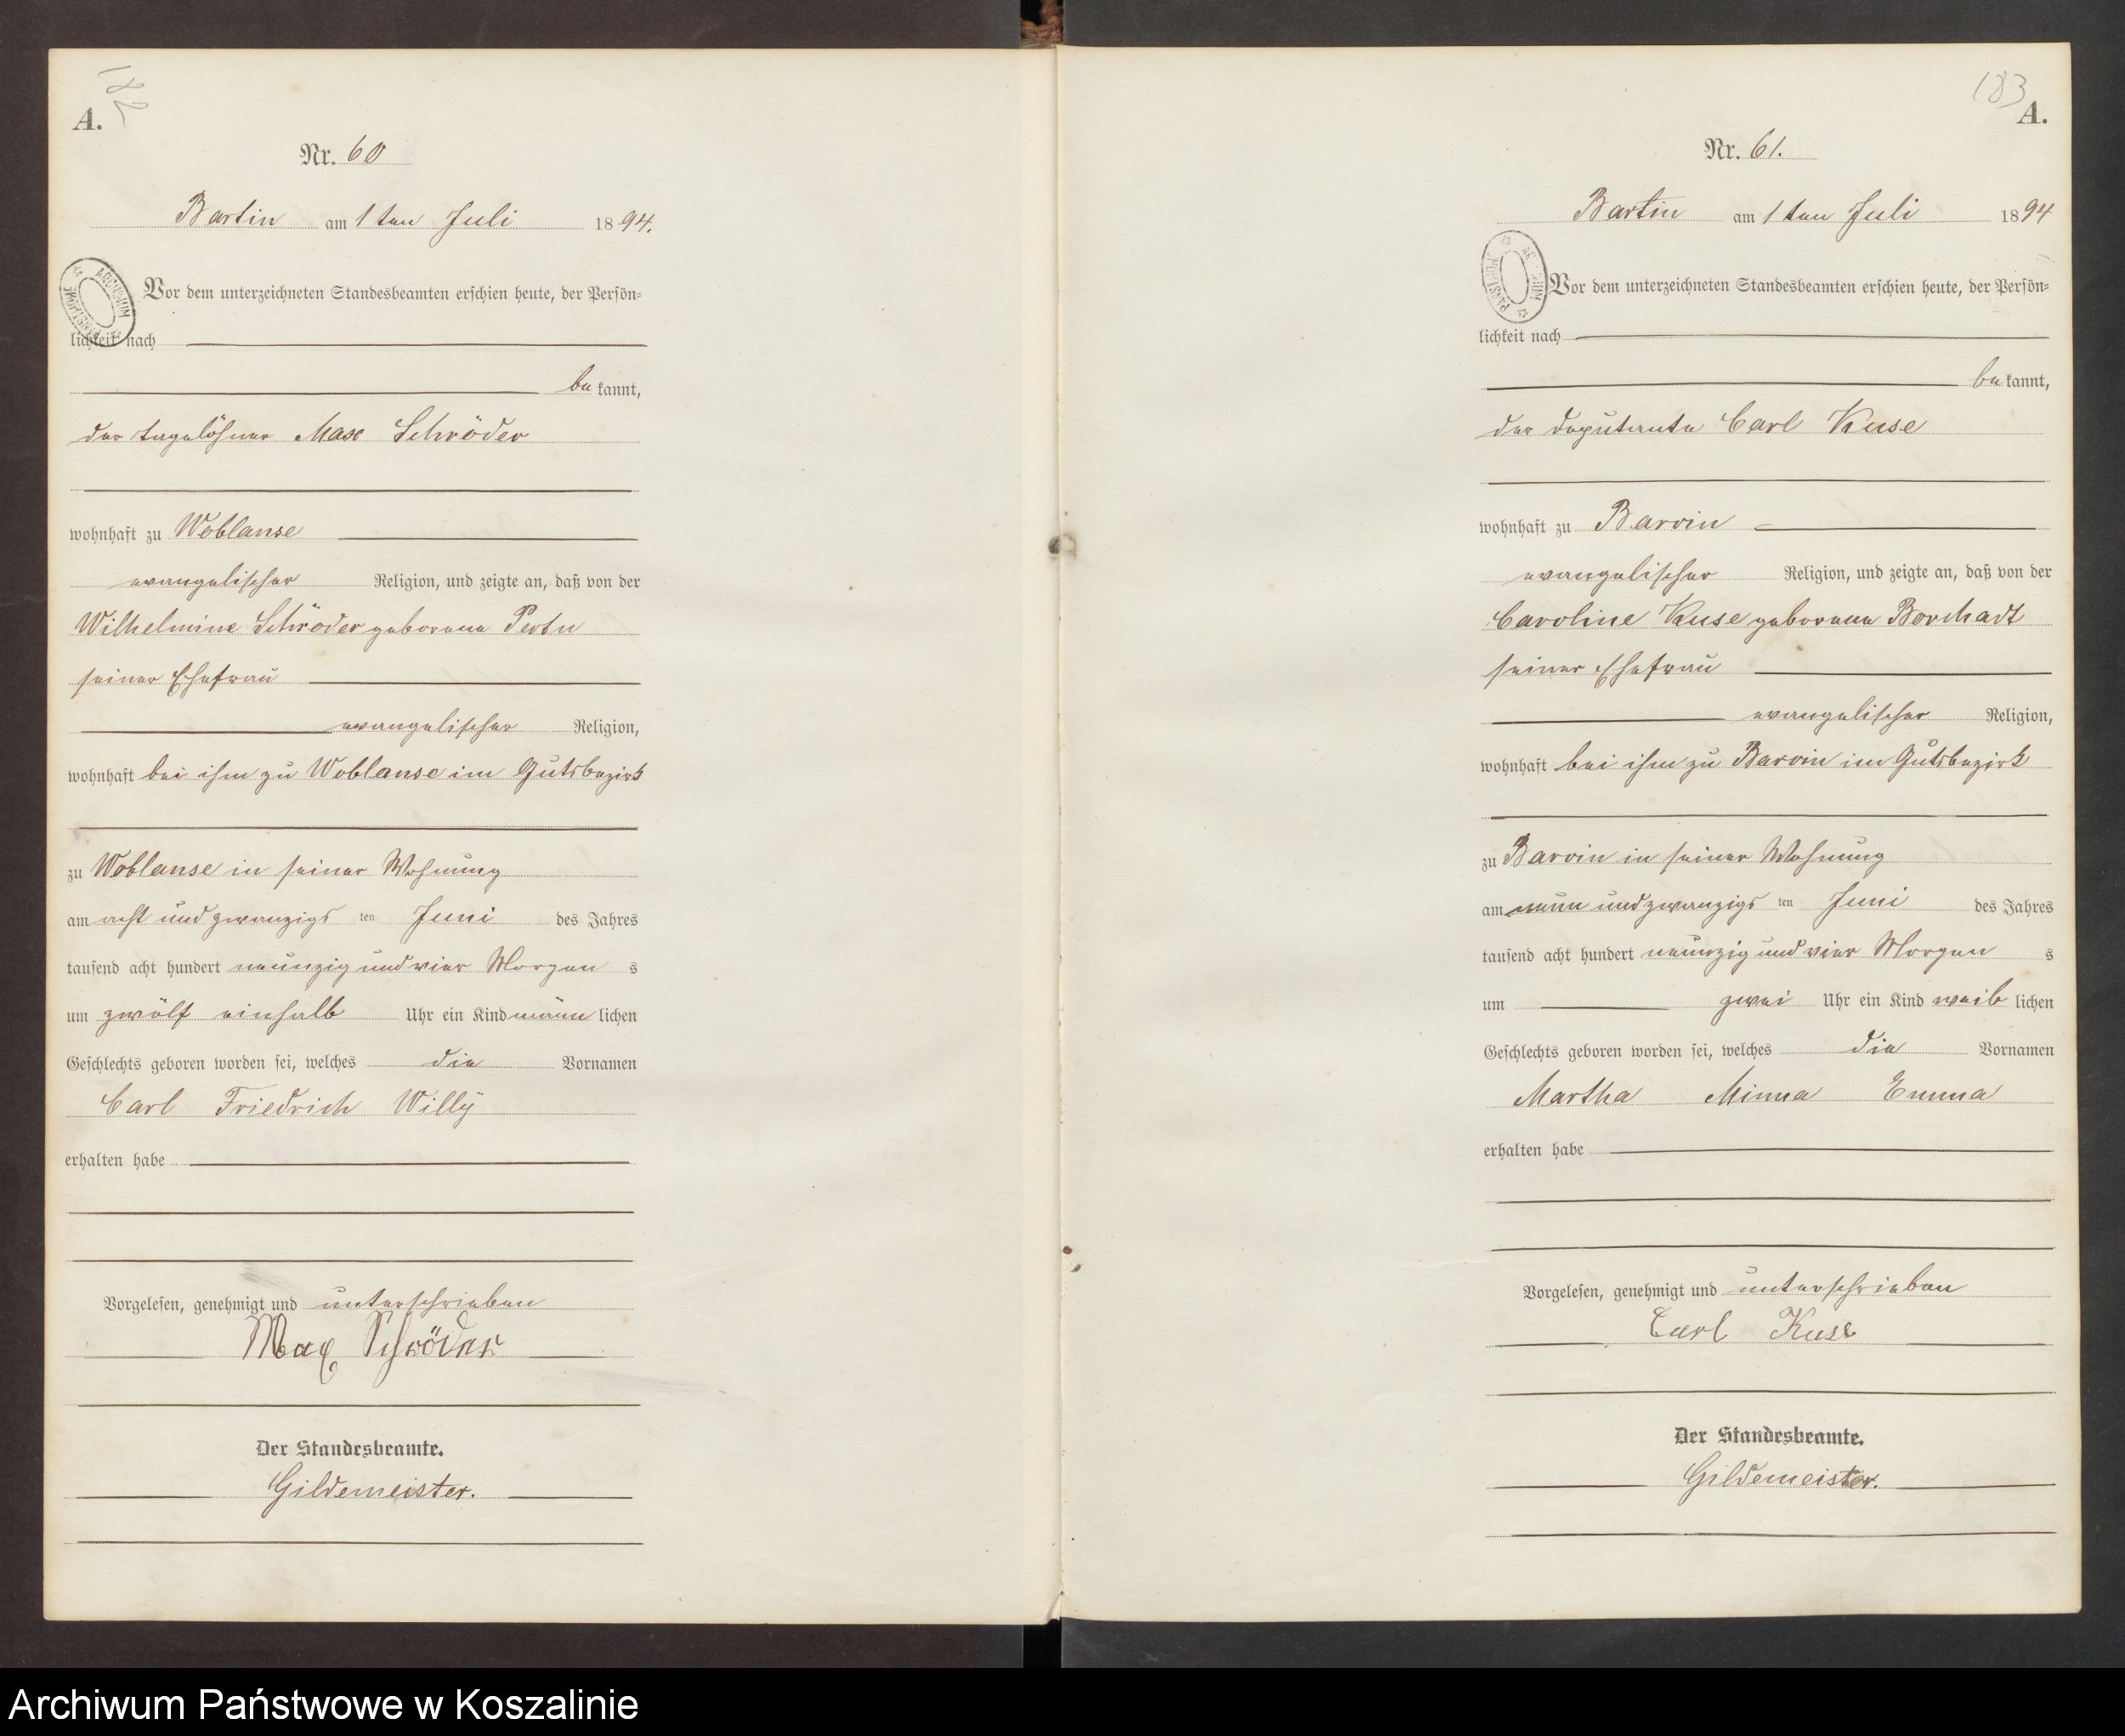 182
A.
Nr. 60
Bartin am 1ten Juli 1894.
ARCHIWUM PAŃSTWOWE
Vor dem unterzeichneten Standesbeamten erschien heute, der Persön=
lichkeit nach
be kannt,
der Tagelöhner Max Schröder
wohnhaft zu Woblanse
evangelischer Religion, und zeigte an, daß von der
Wilhelmine Schröder geborene
seiner Ehefrau
evangelischer Religion,
wohnhaft bei ihm zu Woblanse im Gutsbezirk
zu Woblanse in seiner Wohnung
am acht und zwanzigs ten Juni des Jahres
tausend acht hundert neunzig und vier Morgen s
um zwölf einhalb Uhr ein Kind männ lichen
Geschlechts geboren worden sei, welches die Vornamen
Carl Friedrich Willÿ
erhalten habe
Vorgelesen, genehmigt und unterschrieben
Max Schröder
Der Standesbeamte.
Gildemeister.
183
A.
Nr. 61.
Bartin am 1ten Juli 1894
ARCHIWUM PAŃSTWOWE
Vor dem unterzeichneten Standesbeamten erschien heute, der Persön=
lichkeit nach
be kannt,
der Deputante Carl Kuse
wohnhaft zu Barvin
evangelischer Religion, und zeigte an, daß von der
Caroline Kuse geborene Borchadt
seiner Ehefrau
evangelischer Religion,
wohnhaft bei ihm zu Barvin im Gutsbezirk
zu Barvin in seiner Wohnung
am neun und zwanzigs ten Juni des Jahres
tausend acht hundert neunzig und vier Morgen s
um zwei Uhr ein Kind weib lichen
Geschlechts geboren worden sei, welches die Vornamen
Martha Minna Emma
erhalten habe
Vorgelesen, genehmigt und unterschrieben
Carl Kuse
Der Standesbeamte.
Gildemeister.
Archiwum Państwowe w Koszalinie